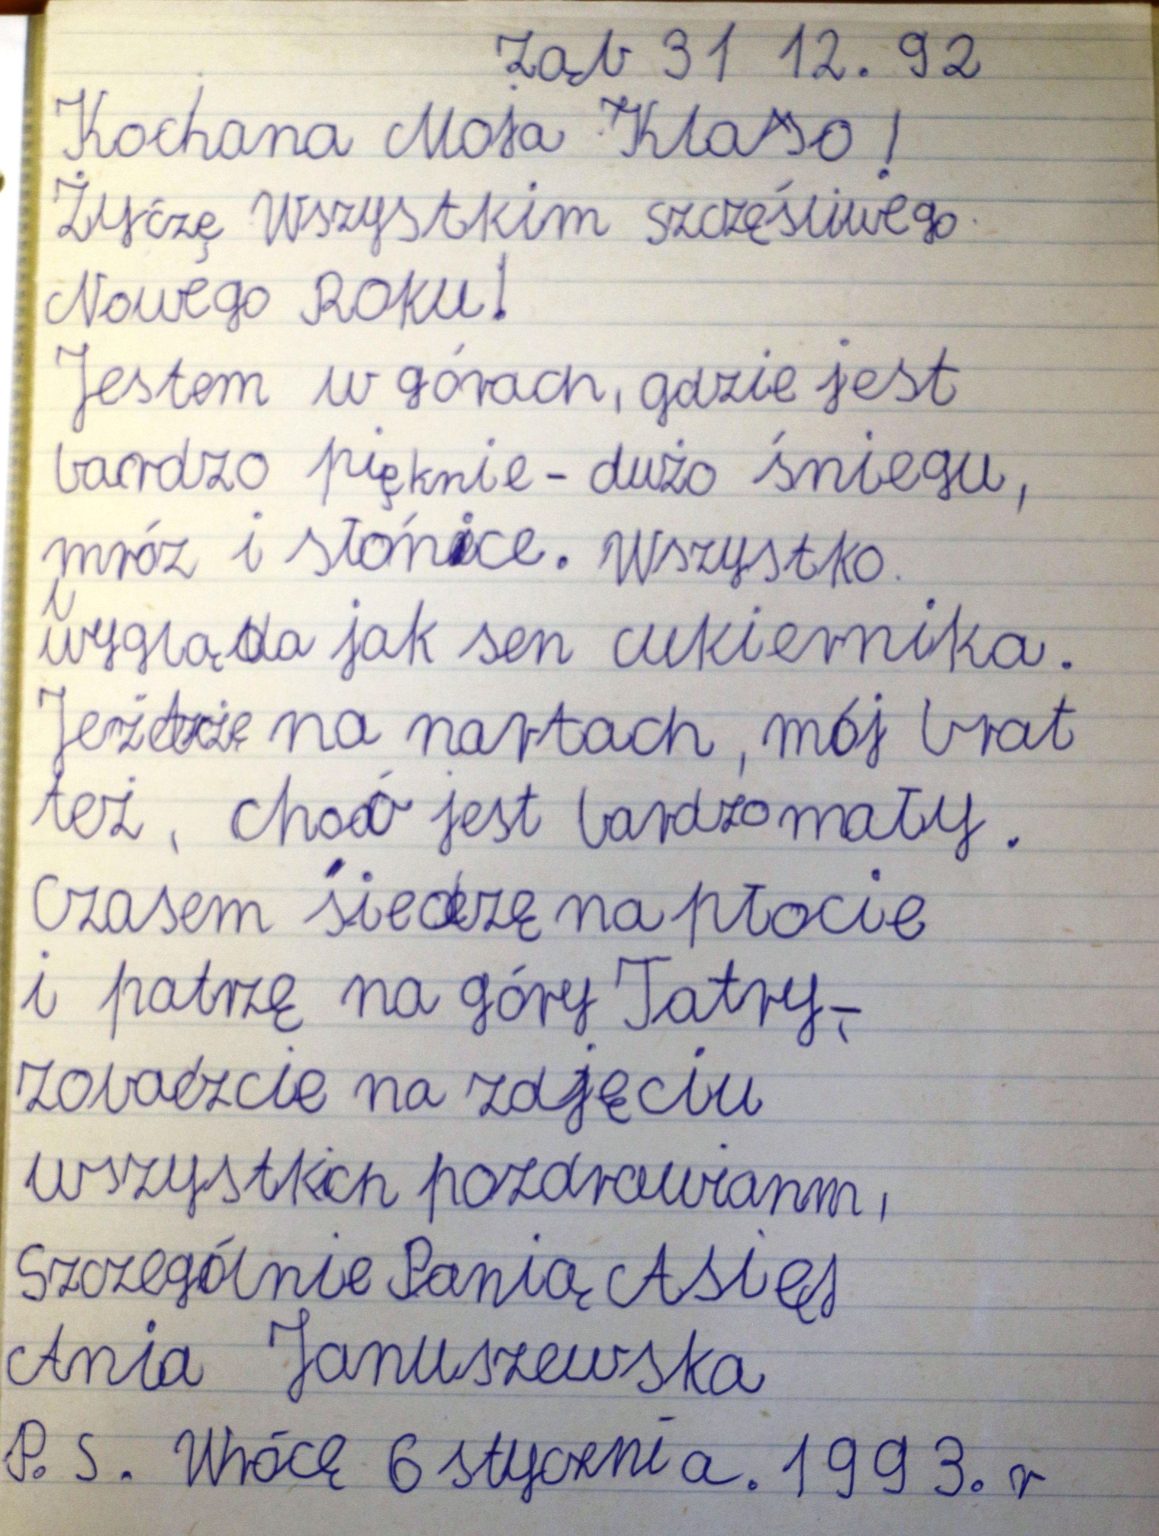 Ząb 31 12. 92
Kochana Moja Klaso!
Życzę Wszystkim szczęśliwego
Nowego Roku!
Jestem w górach, gdzie jest
bardzo pięknie - dużo śniegu,
mróz i słońce. Wszystko
wygląda jak sen cukiernika.
Jeżdżę na nartach, mój brat
też, choć jest bardzo mały.
Czasem siedzę na płocie
i patrzę na góry Tatry,-
zobaczcie na zdjęciu
wszystkich pozdrawiam,
Szczególnie Panią Asię
Ania Januszewska
P. S. Wrócę 6 stycznia. 1993. r